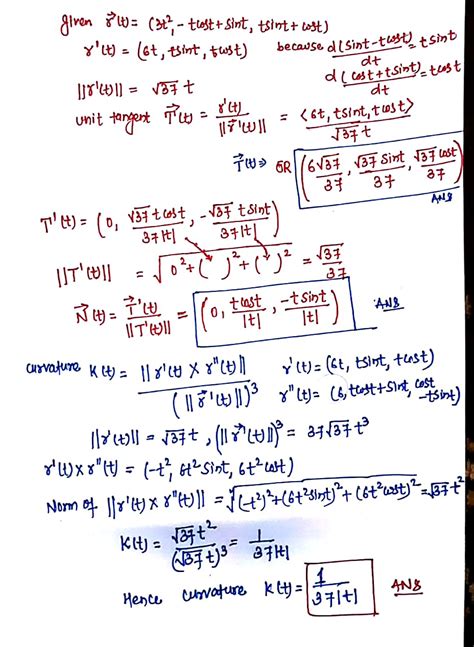 given r⃗(t) = (3t², -tcost+sint, tsint+cost)
r'(t) = (6t, tsint, tcost) because d(sint-tcost)/dt = tsint
d(cost+tsint)/dt = tcost
||r'(t)|| = √37 t
unit tangent T⃗(t) = r'(t)/||r⃗'(t)|| = <6t, tsint, tcost>/√37 t
T⃗(t) ⇒ OR (6√37/37, √37 sint/37, √37 cost/37)
ANS
T'(t) = (0, √37 tcost/37|t|, -√37 tsint/37|t|)
||T'(t)|| = √0²+( )²+( )² = √37/37
N⃗(t) = T⃗'(t)/||T'(t)|| = (0, tcost/|t|, -tsint/|t|) ANS
curvature K(t) = ||r'(t) X r''(t)||/(||r⃗'(t)||)³ r'(t) = (6t, tsint, tcost)
r''(t) = (6, tcost+sint, cost-tsint)
||r'(t)|| = √37 t, (||r⃗'(t)||)³ = 37√37 t³
r'(t) x r''(t) = (-t², 6t² sint, 6t² cost)
Norm of ||r'(t) x r''(t)|| = √(-t²)²+(6t²sint)²+(6t²cost)² = √37 t²
K(t) = √37 t²/(√37 t)³ = 1/37|t|
Hence curvature K(t) = 1/37|t| ANS